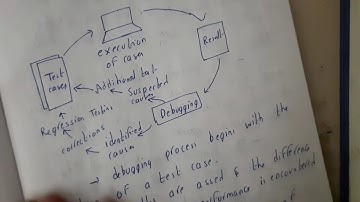 execution
of cases
Test
cases
Result
Additional test
Suspected
causes
Debugging
Regression Testing
identified
causes
corrections
→ debugging process begins with the
of a test case.
are assed & the difference
performance is encountered